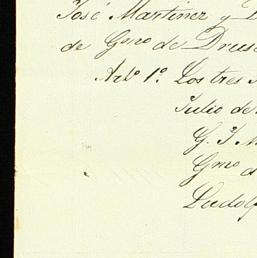 José Martinez y
de Gmo de Druse
Arto 1º. Los tres
Julio de
G. J. M
Gmo
Ludolf